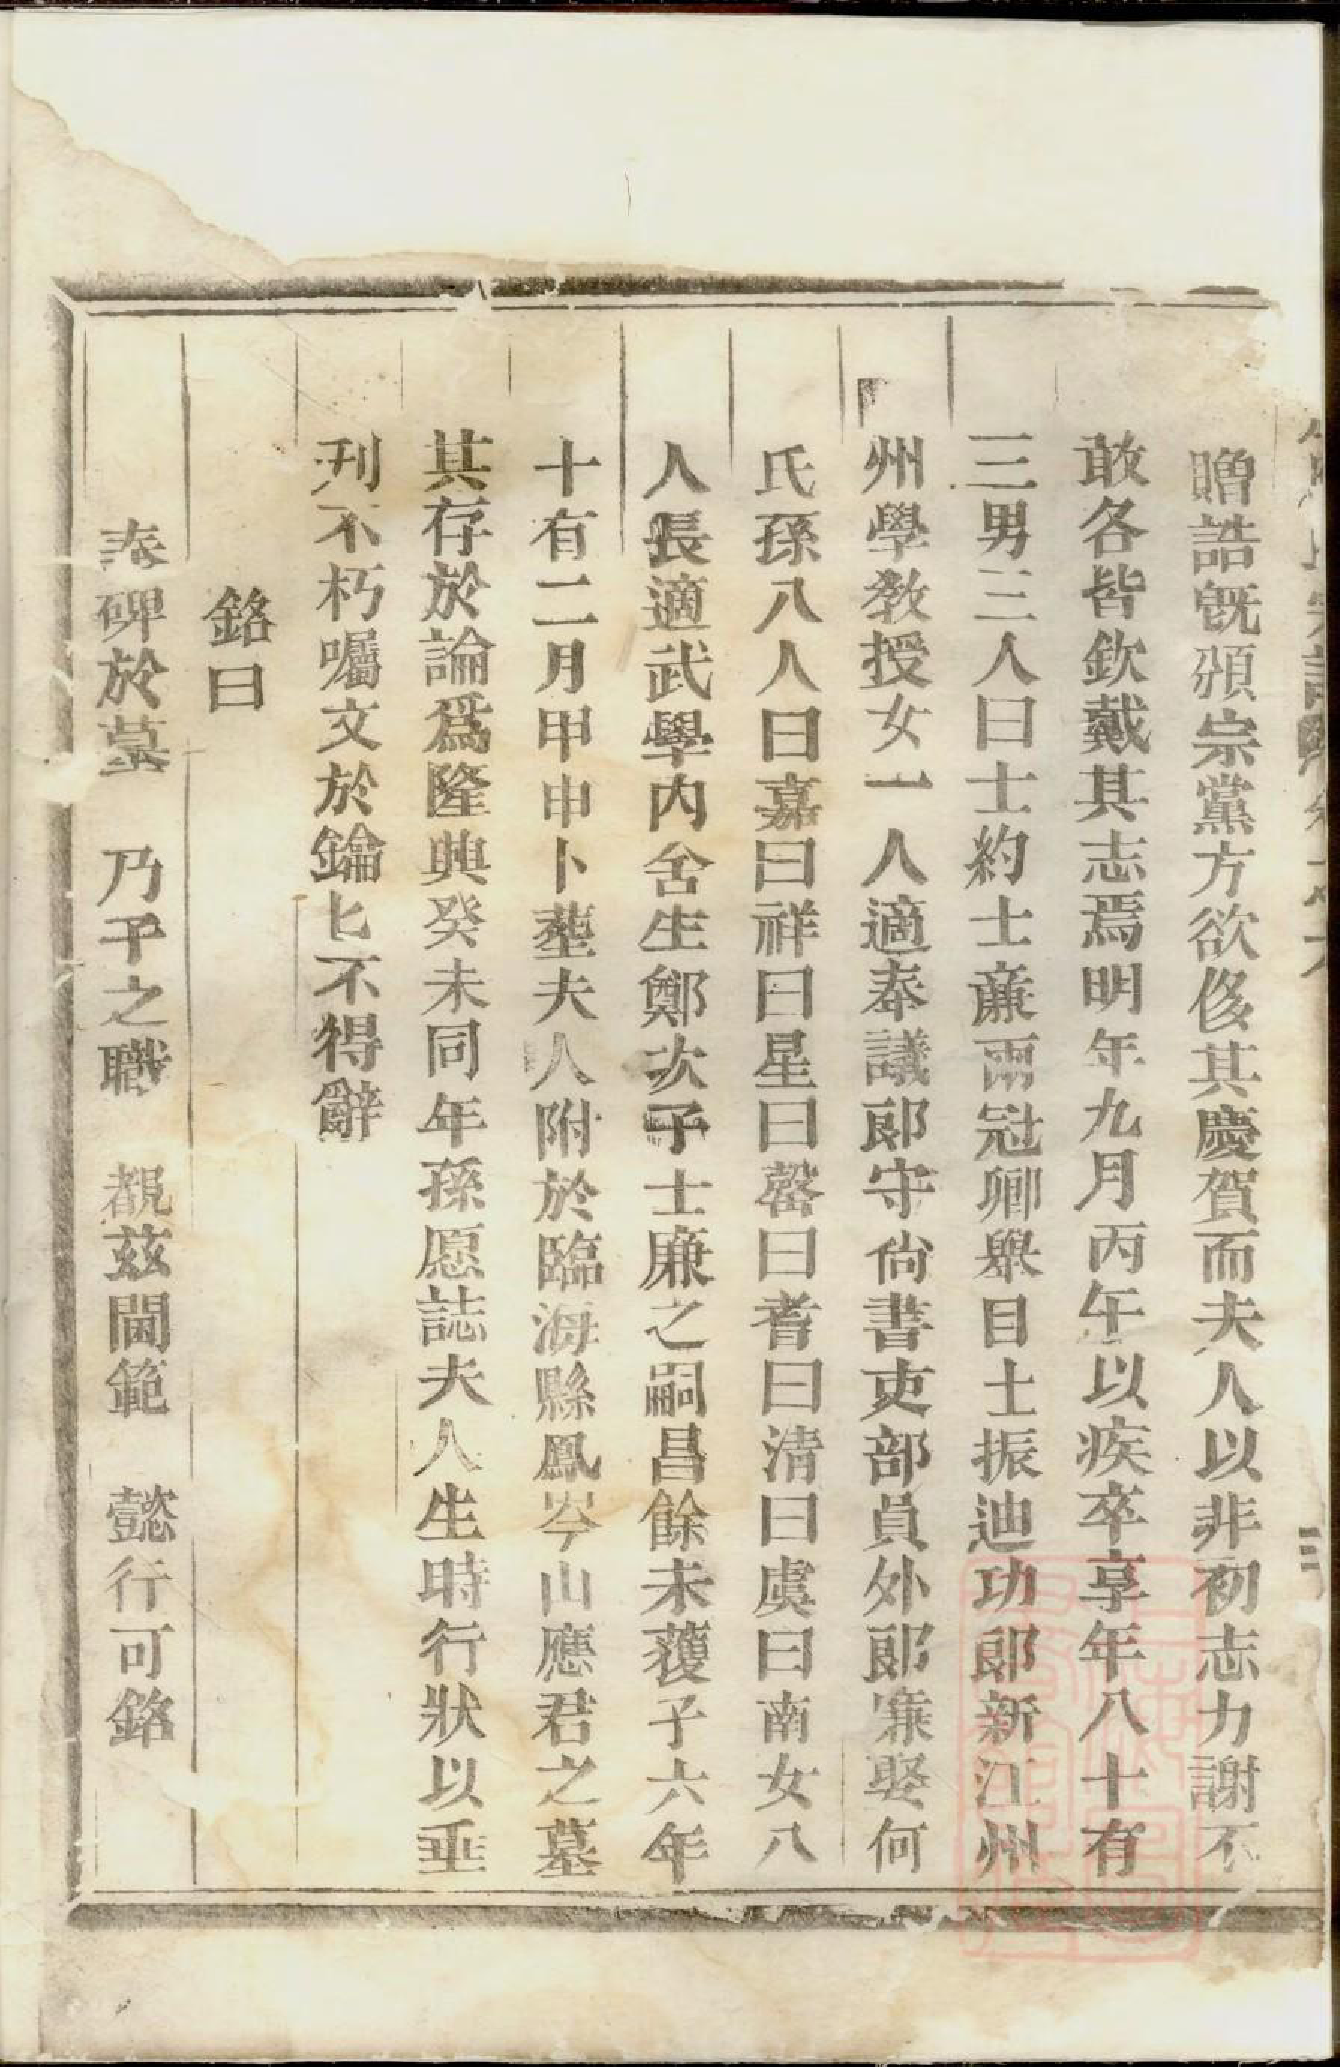 贈誥旣頒宗黨方欲侈其慶賀而夫人以非初志力謝不
敢各皆欽戴其志焉明年九月丙午以疾卒享年八十有
三男三人曰士約士亷兩冠鄉舉目士振迪功郎新江州
州學敎授女一人適奉議郎守尙書吏部員外郎寀娶何
氏孫八人曰嘉曰祥曰星曰罄曰耆曰清曰虞曰南女八
人長適武學內舍生鄭次予士廉之嗣昌餘未蕧子六年
十有二月甲申卜塟夫人附於臨海縣鳳岑山應君之墓
其存於論爲隆興癸未同年孫愿誌夫人生時行狀以垂
刋不朽囑文於鑰匕不得辭
銘曰
表碑於墓　乃予之職　覩茲閫範　懿行可銘